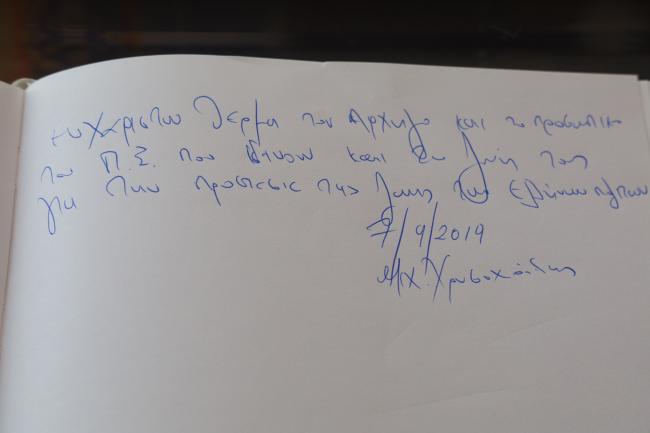 ευχαριστω θερμα τον Αρχηγο και το προσωπικο
του Π.Σ. που δινουν και τη ζωη τους
για την προστασια της ζωης των Ελληνων πολιτων
7/9/2019
Μιχ. Χρυσοχοΐδης